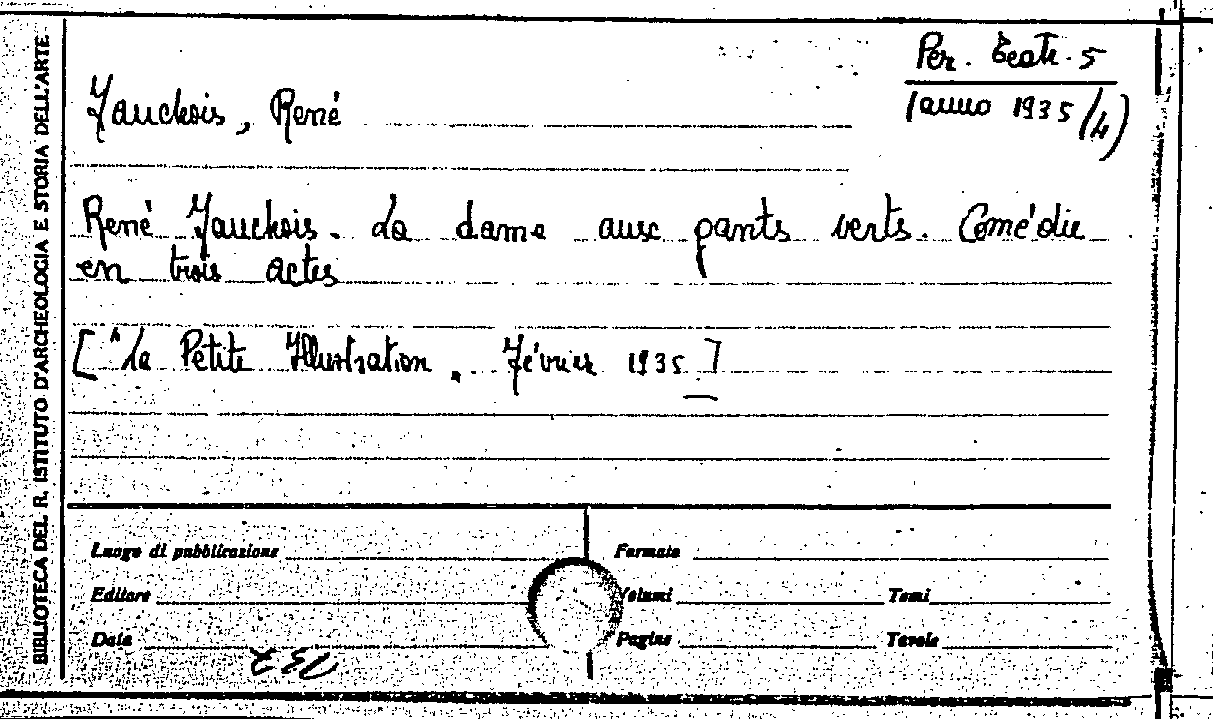 BIBLIOTECA DEL R. ISTITUTO D'ARCHEOLOGIA E STORIA DELL'ARTE
Per. Teatr. 5
(anno 1935/4)
Fauchois, René
René Fauchois. La dame aux gants verts. Comédie
en trois actes
["La Petite Illustration. Février 1935]
Luogo di pubblicazione
Formato
Editore
Volumi
Tomi
Data
Pagine
Tavole